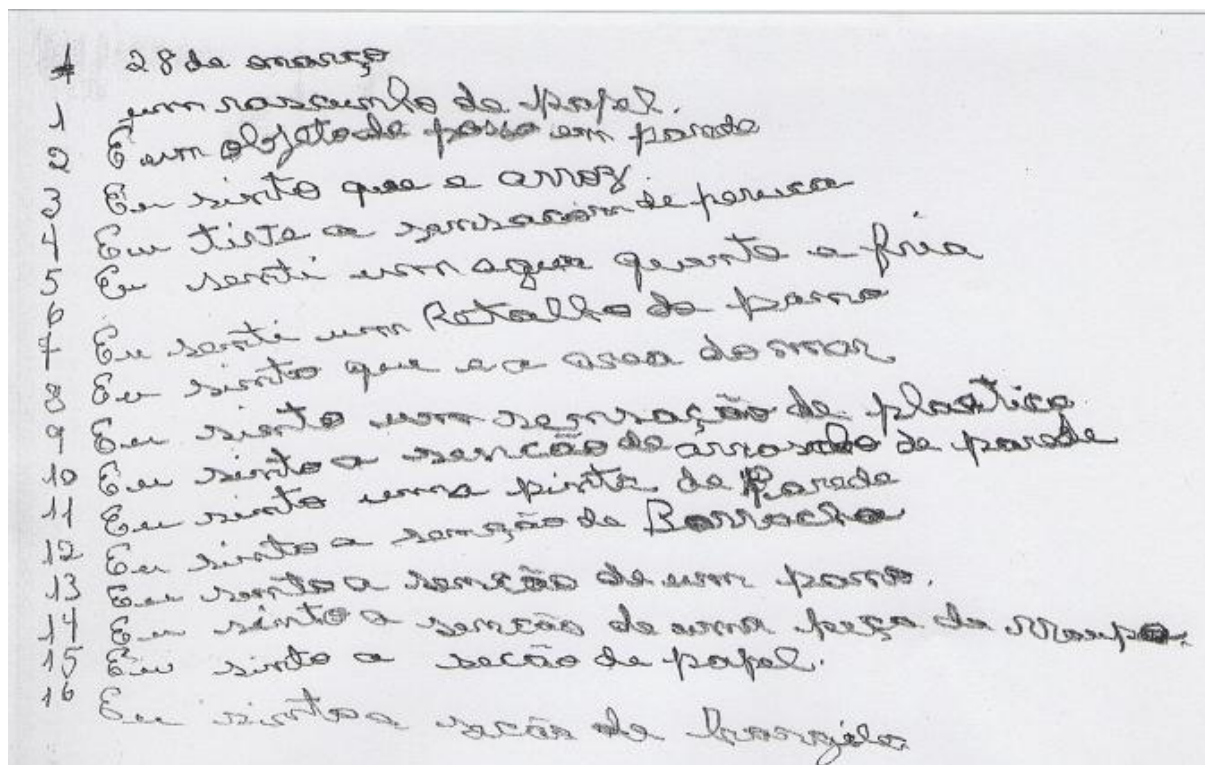 1 28 de março
1 um rascunho de papel.
2 É um objeto de passa em parede
3 Eu sinto que e arroz.
4 Eu tiste a sensacom de peruca
5 Eu senti um agua quante e fria
6
7 Eu senti um Ratralho de pano
8 Eu sinto que e a area do mar
9 Eu siento um sensação de plastico
10 Eu sinto a sencão de arrosdo de parede
11 Eu sinto uma pinta de Parede
12 Eu sinto a senção de Borracha
13 Eu sento a sencão de um pano.
14 Eu sinto a sencão de uma peça de rroupa.
15 Eu sinto a secão de papel.
16 Eu sinto a secão de